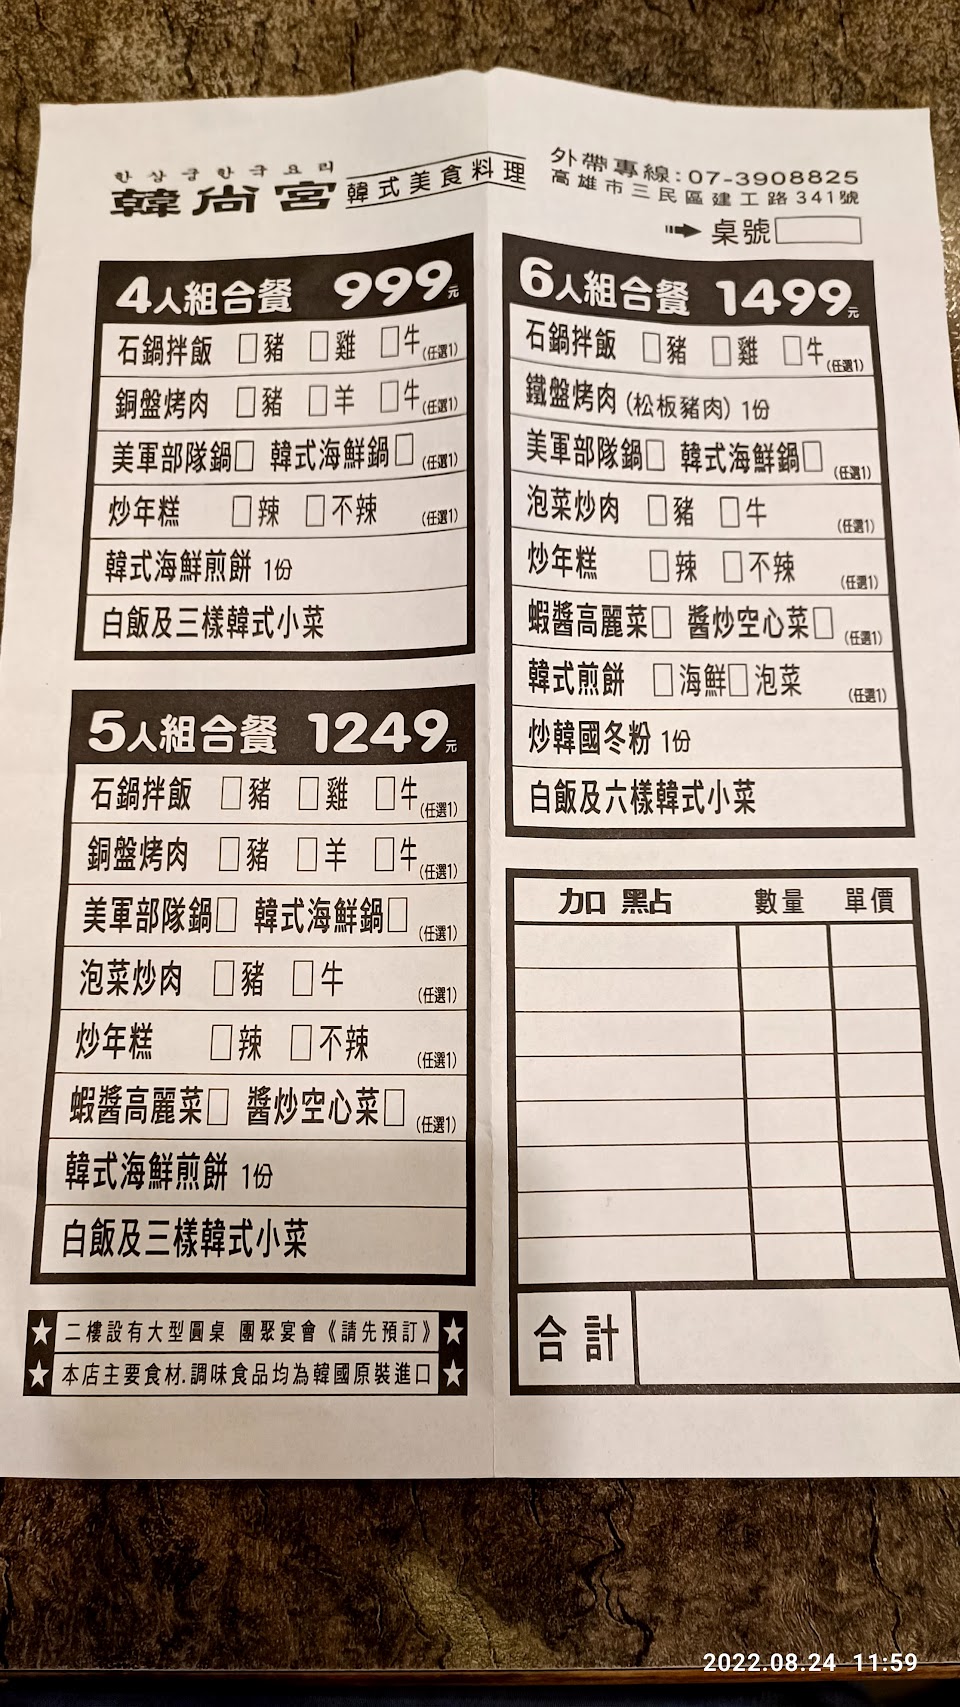 한상궁한국요리
韓尚宮 韓式美食料理
外帶專線:07-3908825
高雄市三民區建工路341號
桌號
4人組合餐 999元
石鍋拌飯 □豬 □雞 □牛(任選1)
銅盤烤肉 □豬 □羊 □牛(任選1)
美軍部隊鍋□ 韓式海鮮鍋□(任選1)
炒年糕 □辣 □不辣 (任選1)
韓式海鮮煎餅 1份
白飯及三樣韓式小菜
5人組合餐 1249元
石鍋拌飯 □豬 □雞 □牛(任選1)
銅盤烤肉 □豬 □羊 □牛(任選1)
美軍部隊鍋□ 韓式海鮮鍋□(任選1)
泡菜炒肉 □豬 □牛 (任選1)
炒年糕 □辣 □不辣 (任選1)
蝦醬高麗菜□ 醬炒空心菜□(任選1)
韓式海鮮煎餅 1份
白飯及三樣韓式小菜
★二樓設有大型圓桌 團聚宴會《請先預訂》★
★本店主要食材.調味食品均為韓國原裝進口★
6人組合餐 1499元
石鍋拌飯 □豬 □雞 □牛(任選1)
鐵盤烤肉(松板豬肉) 1份
美軍部隊鍋□ 韓式海鮮鍋□(任選1)
泡菜炒肉 □豬 □牛 (任選1)
炒年糕 □辣 □不辣 (任選1)
蝦醬高麗菜□ 醬炒空心菜□(任選1)
韓式煎餅 □海鮮□泡菜 (任選1)
炒韓國冬粉 1份
白飯及六樣韓式小菜
加點 數量 單價
合計
2022.08.24 11:59